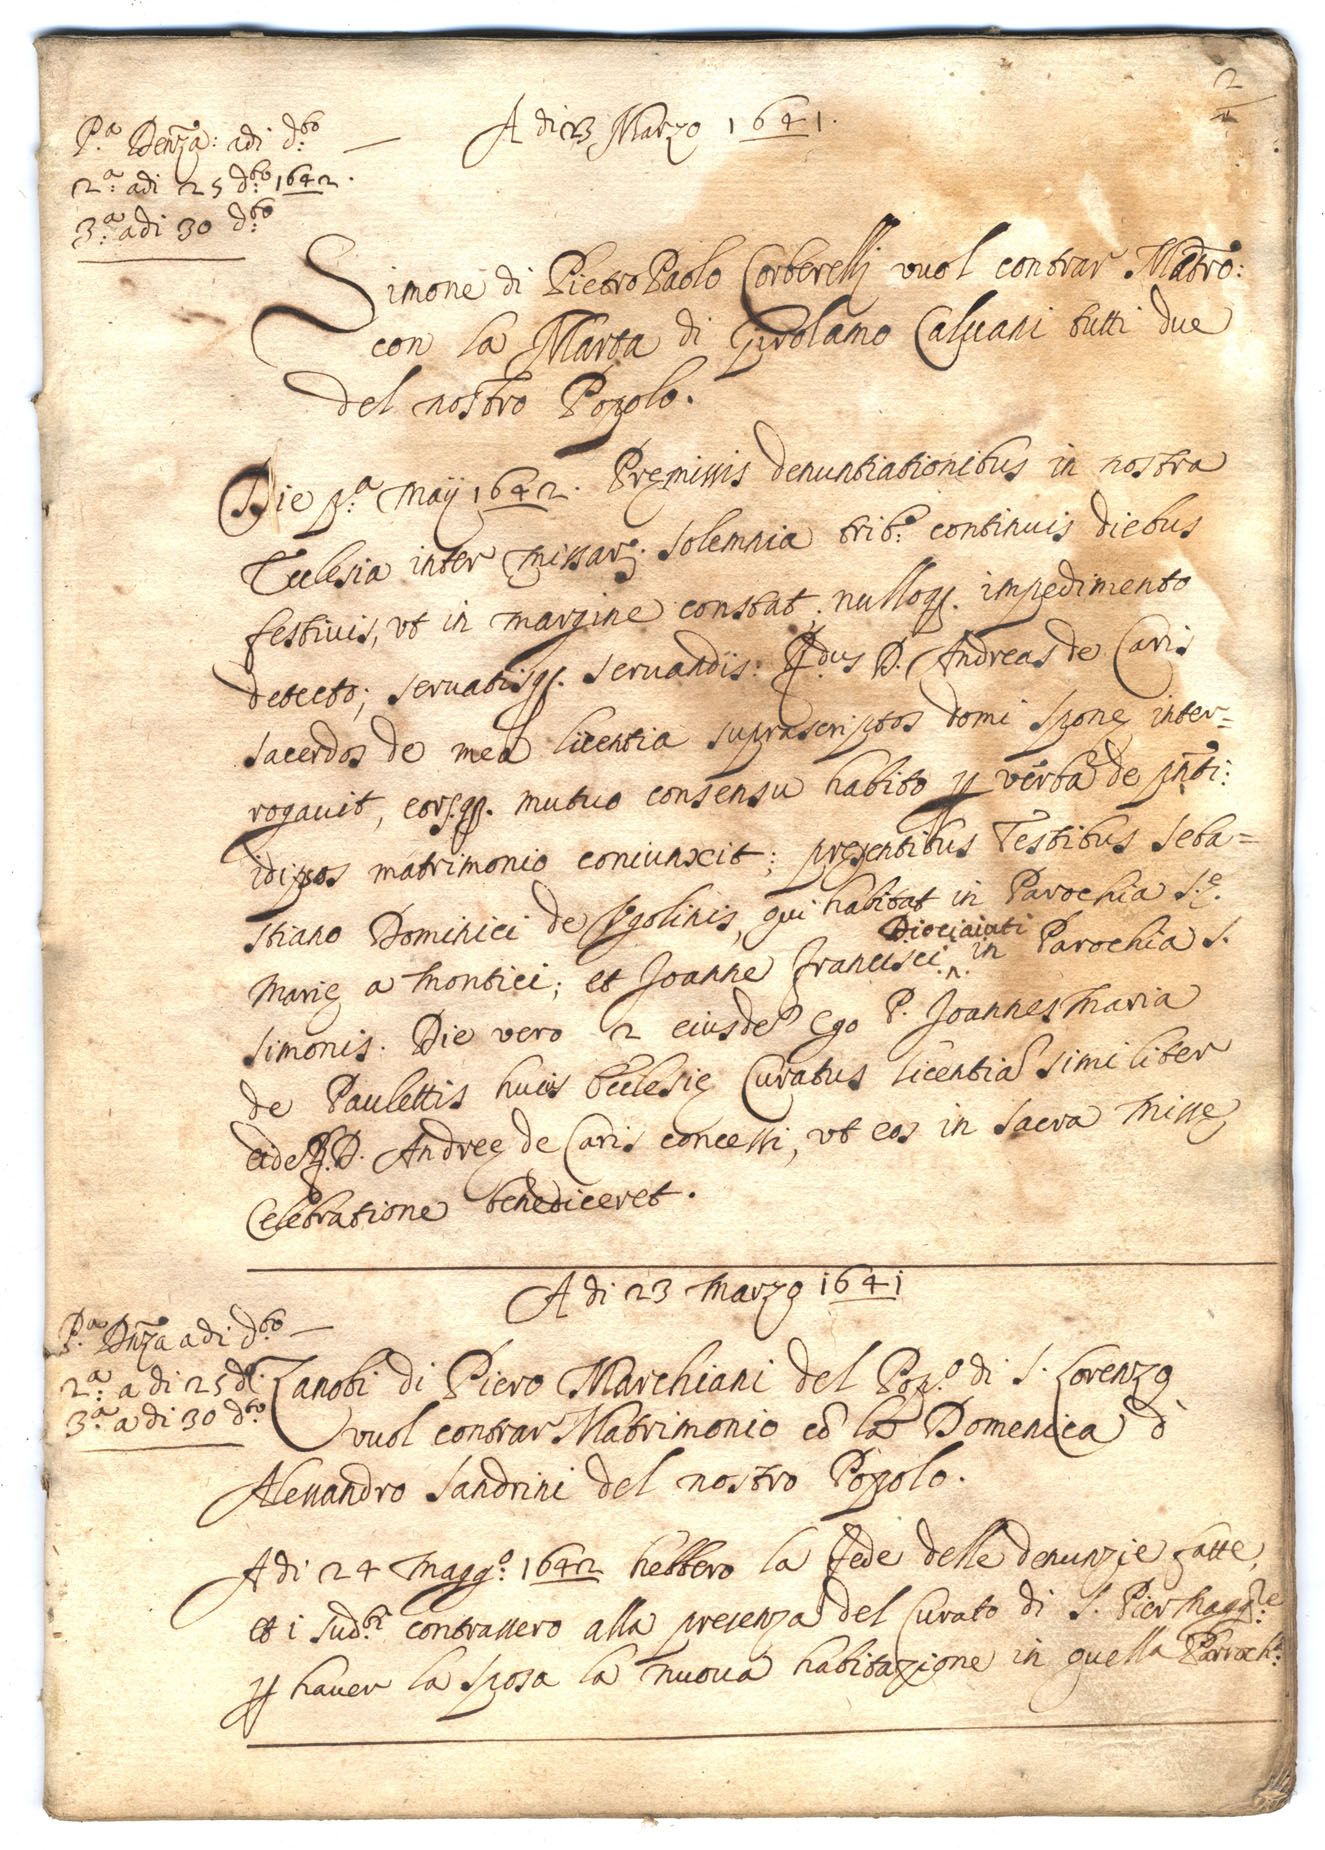 2
A di 23 Marzo 1641.
P.a Denza: adi d:to
2.a adi 25 d:to 1642.
3.a adi 30 d:to
Simone di Pietro Paolo Corberelli vuol contrar Matro:
con la Marta di Girolamo Caluani tutti due
del nostro Popolo.
Die p.a Maij 1642. Premissis denuntiationibus in nostra
Ecclesia inter missar. solemnia trib. continuis diebus
festiuis, vt in margine constat, nulloq. impedimento
detecto; seruatisq. seruandis: R.dus D. Andreas de Caris
sacerdos de mea licentia suprascriptos domi sponse inter=
rogauit, eorq. mutuo consensu habito p verba de pnti:
idipsos matrimonio coniunxit; presentibus Testibus Seba=
stiano Dominici de Vgolinis, qui habitat in Parochia S.e
Marie a Montici; et Joanne Francisci in Parochia S.
Diociaiuti
Simonis. Die vero 2 eiusde Ego P. Joannes Maria
de Paulettis huius Ecclesie Curatus licentia similiter
eide R. D. Andree de Caris concessi, vt eos in sacra Misse
Celebratione benediceret.
A di 23 Marzo 1641
P.a Dnza a di d:to
2.a a di 25 d.
3.a a di 30 d:to
Zanobi di Piero Marchiani del Pop.o di S. Lorenzo
vuol contrar Matrimonio co la Domenica d
Alessandro Sandrini del nostro Popolo.
A di 24 Magg.o 1642 hebbero la fede delle denunzie fatte,
et i sud.ti contrassero alla presenza del Curato di S. Pier Magg.re
p hauer la sposa la nuoua habitazione in quella Parroch.a